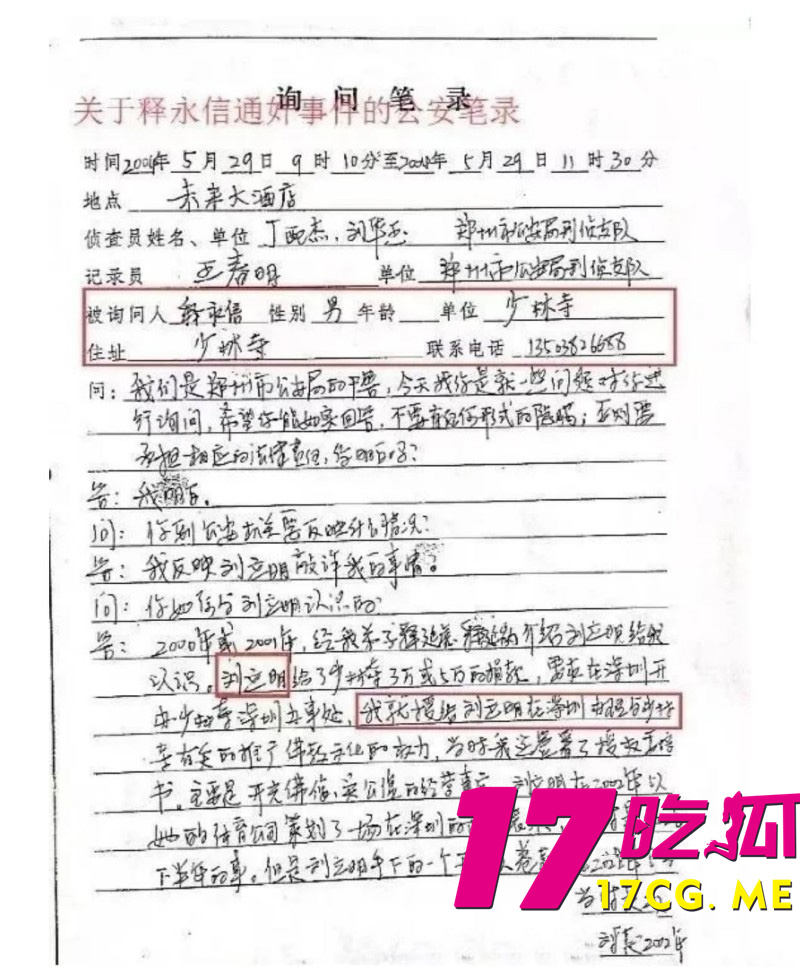 询问笔录
关于释永信通奸事件的公安笔录
时间2004年5月29日9时10分至2004年5月29日11时30分
地点 未来大酒店
侦查员姓名、单位 丁 杰、刘华 郑州市公安局刑侦支队
记录员 王春明 单位 郑州市公安局刑侦支队
被询问人 释永信 性别 男 年龄 单位 少林寺
住址 少林寺 联系电话 13503826688
问:我们是郑州市公安局的干警,今天我们是就一些问题对你进
行询问,希望你能如实回答,不要有任何形式的隐瞒;否则要
承担相应的法律责任,你明白吗?
答:我明白。
问:你到公安机关要反映什么情况?
答:我反映刘立明敲诈我的事情。
问:你如何与刘立明认识的?
答:2000年或2001年,经我弟子释延 介绍刘立明给我
认识。刘立明给了少林寺3万或5万的捐款,要求在深圳开
办少林寺深圳办事处,我就授给刘立明在深圳办理与少林
寺有关的推广佛教文化的权力,当时我还签署了授权委托
书,主要是开光佛像、 的经营事宜。刘立明在2002年以
她的体育公司策划了一场在深圳的
下半年的事。但是刘立明手下的一个
2002年
17吃狐
17CG.ME